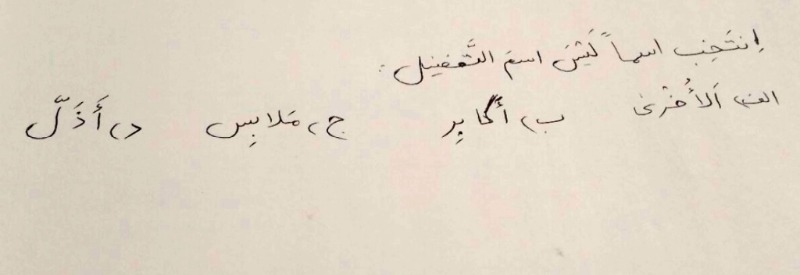 اِنتَخِب اسماً لَیْسَ اسمَ التَّفضیل:
الف) اَلأُخْرىٰ ب) أَکابِر ج) مَلابِس د) أَذَلّ